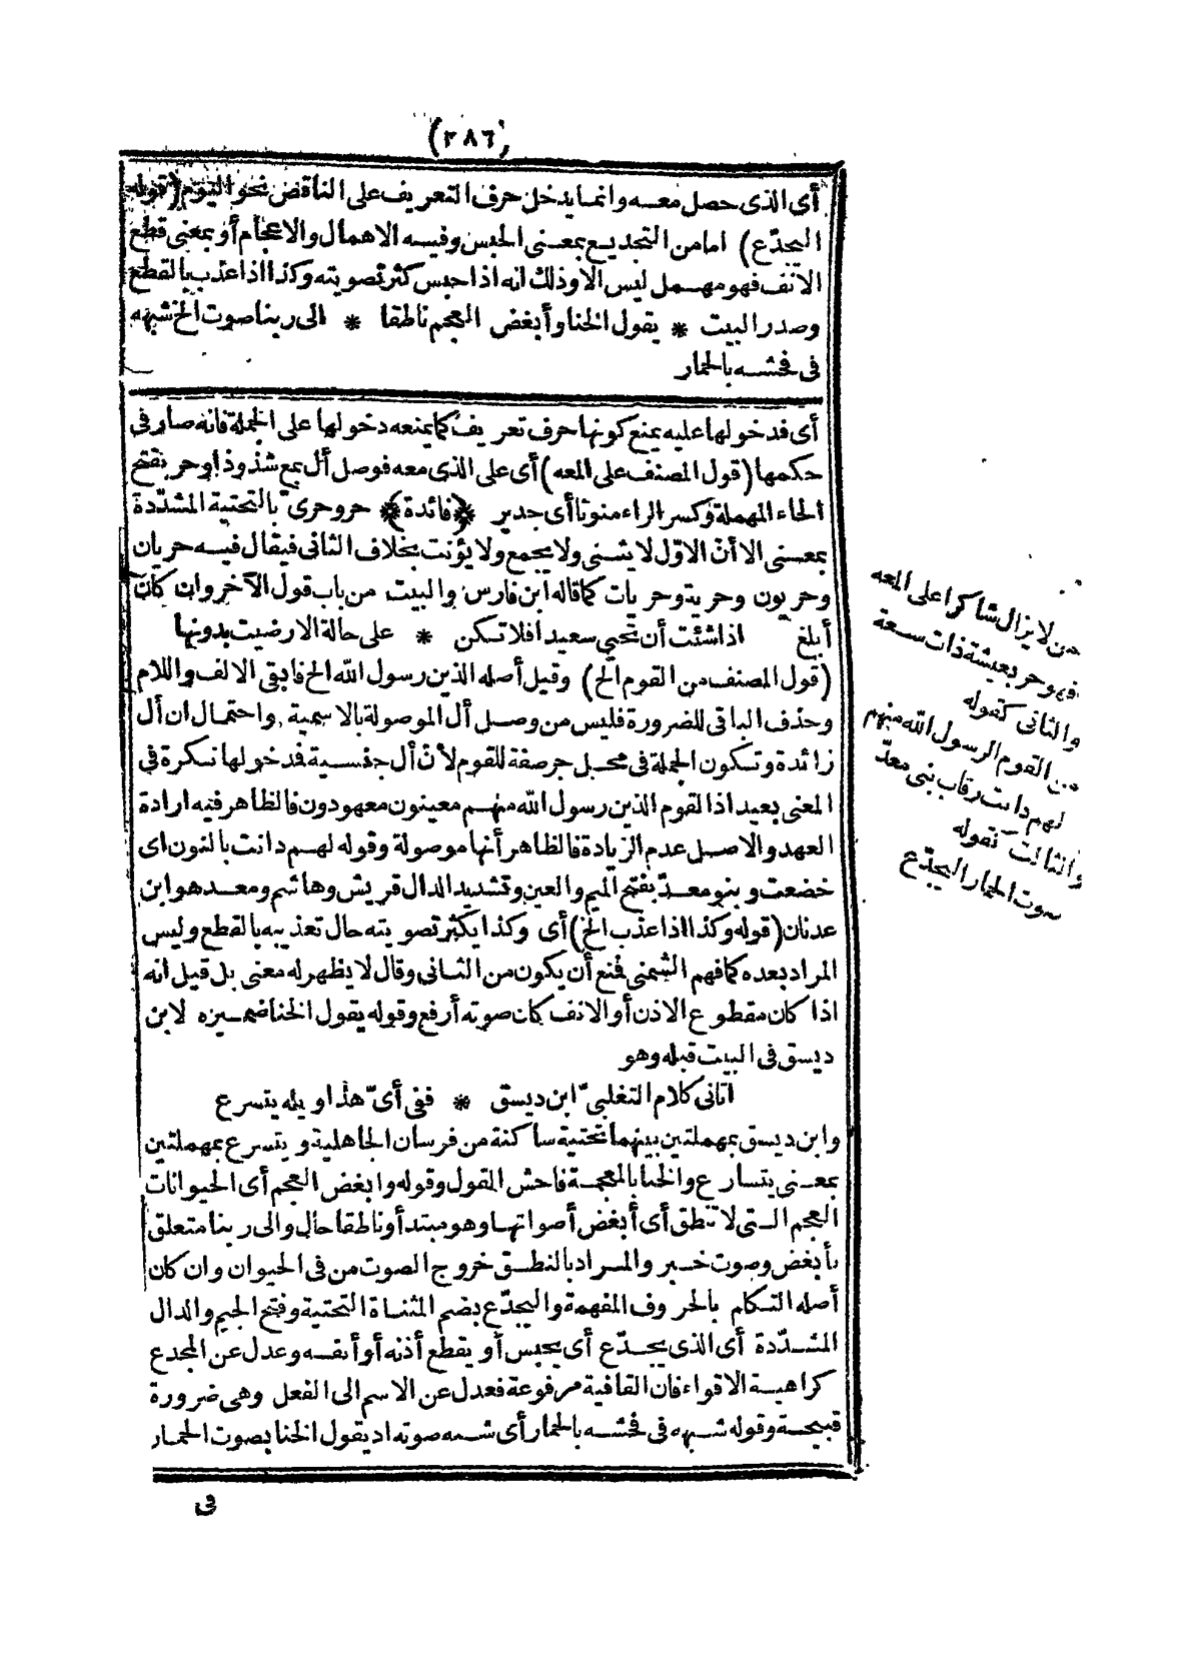 (٢٨٦)
أى الذى حصل معه وانما يدخل حرف التعريف على الناقض نحو اليوم (قوله
اليجدّع) امامن التجديع بمعنى الحبس وفيه الاهمال والاعجام أو بمعنى قطع
الانف فهو مهمل ليس الا وذلك انه اذا حبس كثر تصويته وكذا اذا عذب بالقطع
وصدر البيت * يقول الخنا وأبغض العجم ناطقا * الى ربنا صوت الخ شبهه
فى فحشه بالحمار
أى فدخولها عليه يمنع كونها حرف تعريف كما يمنعه دخولها على الجملة فانه صار فى
حكمها (قول المصنف على المعه) أى على الذى معه فوصل أل بمع شذوذا وحر بفتح
الحاء المهملة وكسر الراء منونا أى جدير ﴿فائدة﴾ حر وحرىّ بالتحتية المشدّدة
بمعنى الا أنّ الاوّل لا يثنى ولا يجمع ولا يؤنث بخلاف الثانى فيقال فيه حريان
وحريون وحرية وحريات كما قاله ابن فارس والبيت من باب قول الآخر وان كان
أبلغ اذا شئت أن تحيى سعيدا فلا تكن * على حالة الا رضيت بدونها
(قول المصنف من القوم الخ) وقيل أصله الذين رسول الله الخ فابقى الالف واللام
وحذف الباقى للضرورة فليس من وصل أل الموصولة بالاسمية واحتمال ان أل
زائدة وتكون الجملة فى محل جر صفة للقوم لأنّ أل جنسية فدخولها نكرة فى
المعنى بعيد اذ القوم الذين رسول الله منهم معينون معهودون فالظاهر فيه ارادة
العهد والاصل عدم الزيادة فالظاهر أنها موصولة وقوله لهم دانت بالنون اى
خضعت وبنو معدّ بفتح الميم والعين وتشديد الدال قريش وهاشم ومعد هو ابن
عدنان (قوله وكذا اذا عذب الخ) أى وكذا يكثر تصويته حال تعذيبه بالقطع وليس
المراد بعده كما فهم الشمنى فمنع أن يكون من الثانى وقال لا يظهر له معنى بل قيل انه
اذا كان مقطوع الاذن أو الانف كان صوته أرفع وقوله يقول الخنا ضميره لابن
ديسق فى البيت قبله وهو
اتانى كلام التغلبىّ ابن ديسق * ففى أىّ هذا ويله يتسرع
وابن ديسق بمهملتين بينهما تحتية ساكنة من فرسان الجاهلية ويتسرع بمهملتين
بمعنى يتسارع والخنا بالمعجمة فاحش القول وقوله وابغض العجم أى الحيوانات
العجم التى لا تنطق أى أبغض أصواتها وهو مبتدأ وناطقا حال والى ربنا متعلق
بأبغض وصوت خبر والمراد بالنطق خروج الصوت من فى الحيوان وان كان
أصله التكلم بالحروف المفهمة واليجدّع بضم المثناة التحتية وفتح الجيم والدال
المشدّدة أى الذى يجدّع أى يحبس أو يقطع أذنه أو أنفه وعدل عن المجدع
كراهية الاقواء فان القافية مرفوعة فعدل عن الاسم الى الفعل وهى ضرورة
قبيحة وقوله شبهه فى فحشه بالحمار أى شبه صوته اذ يقول الخنا بصوت الحمار
فى
من لا يزال شاكرا على المعه
فهو حر بعيشة ذات سعة
والثانى كقوله
من القوم الرسول الله منهم
لهم دانت رقاب بنى معدّ
والثالث كقوله
صوت الحمار اليجدّع